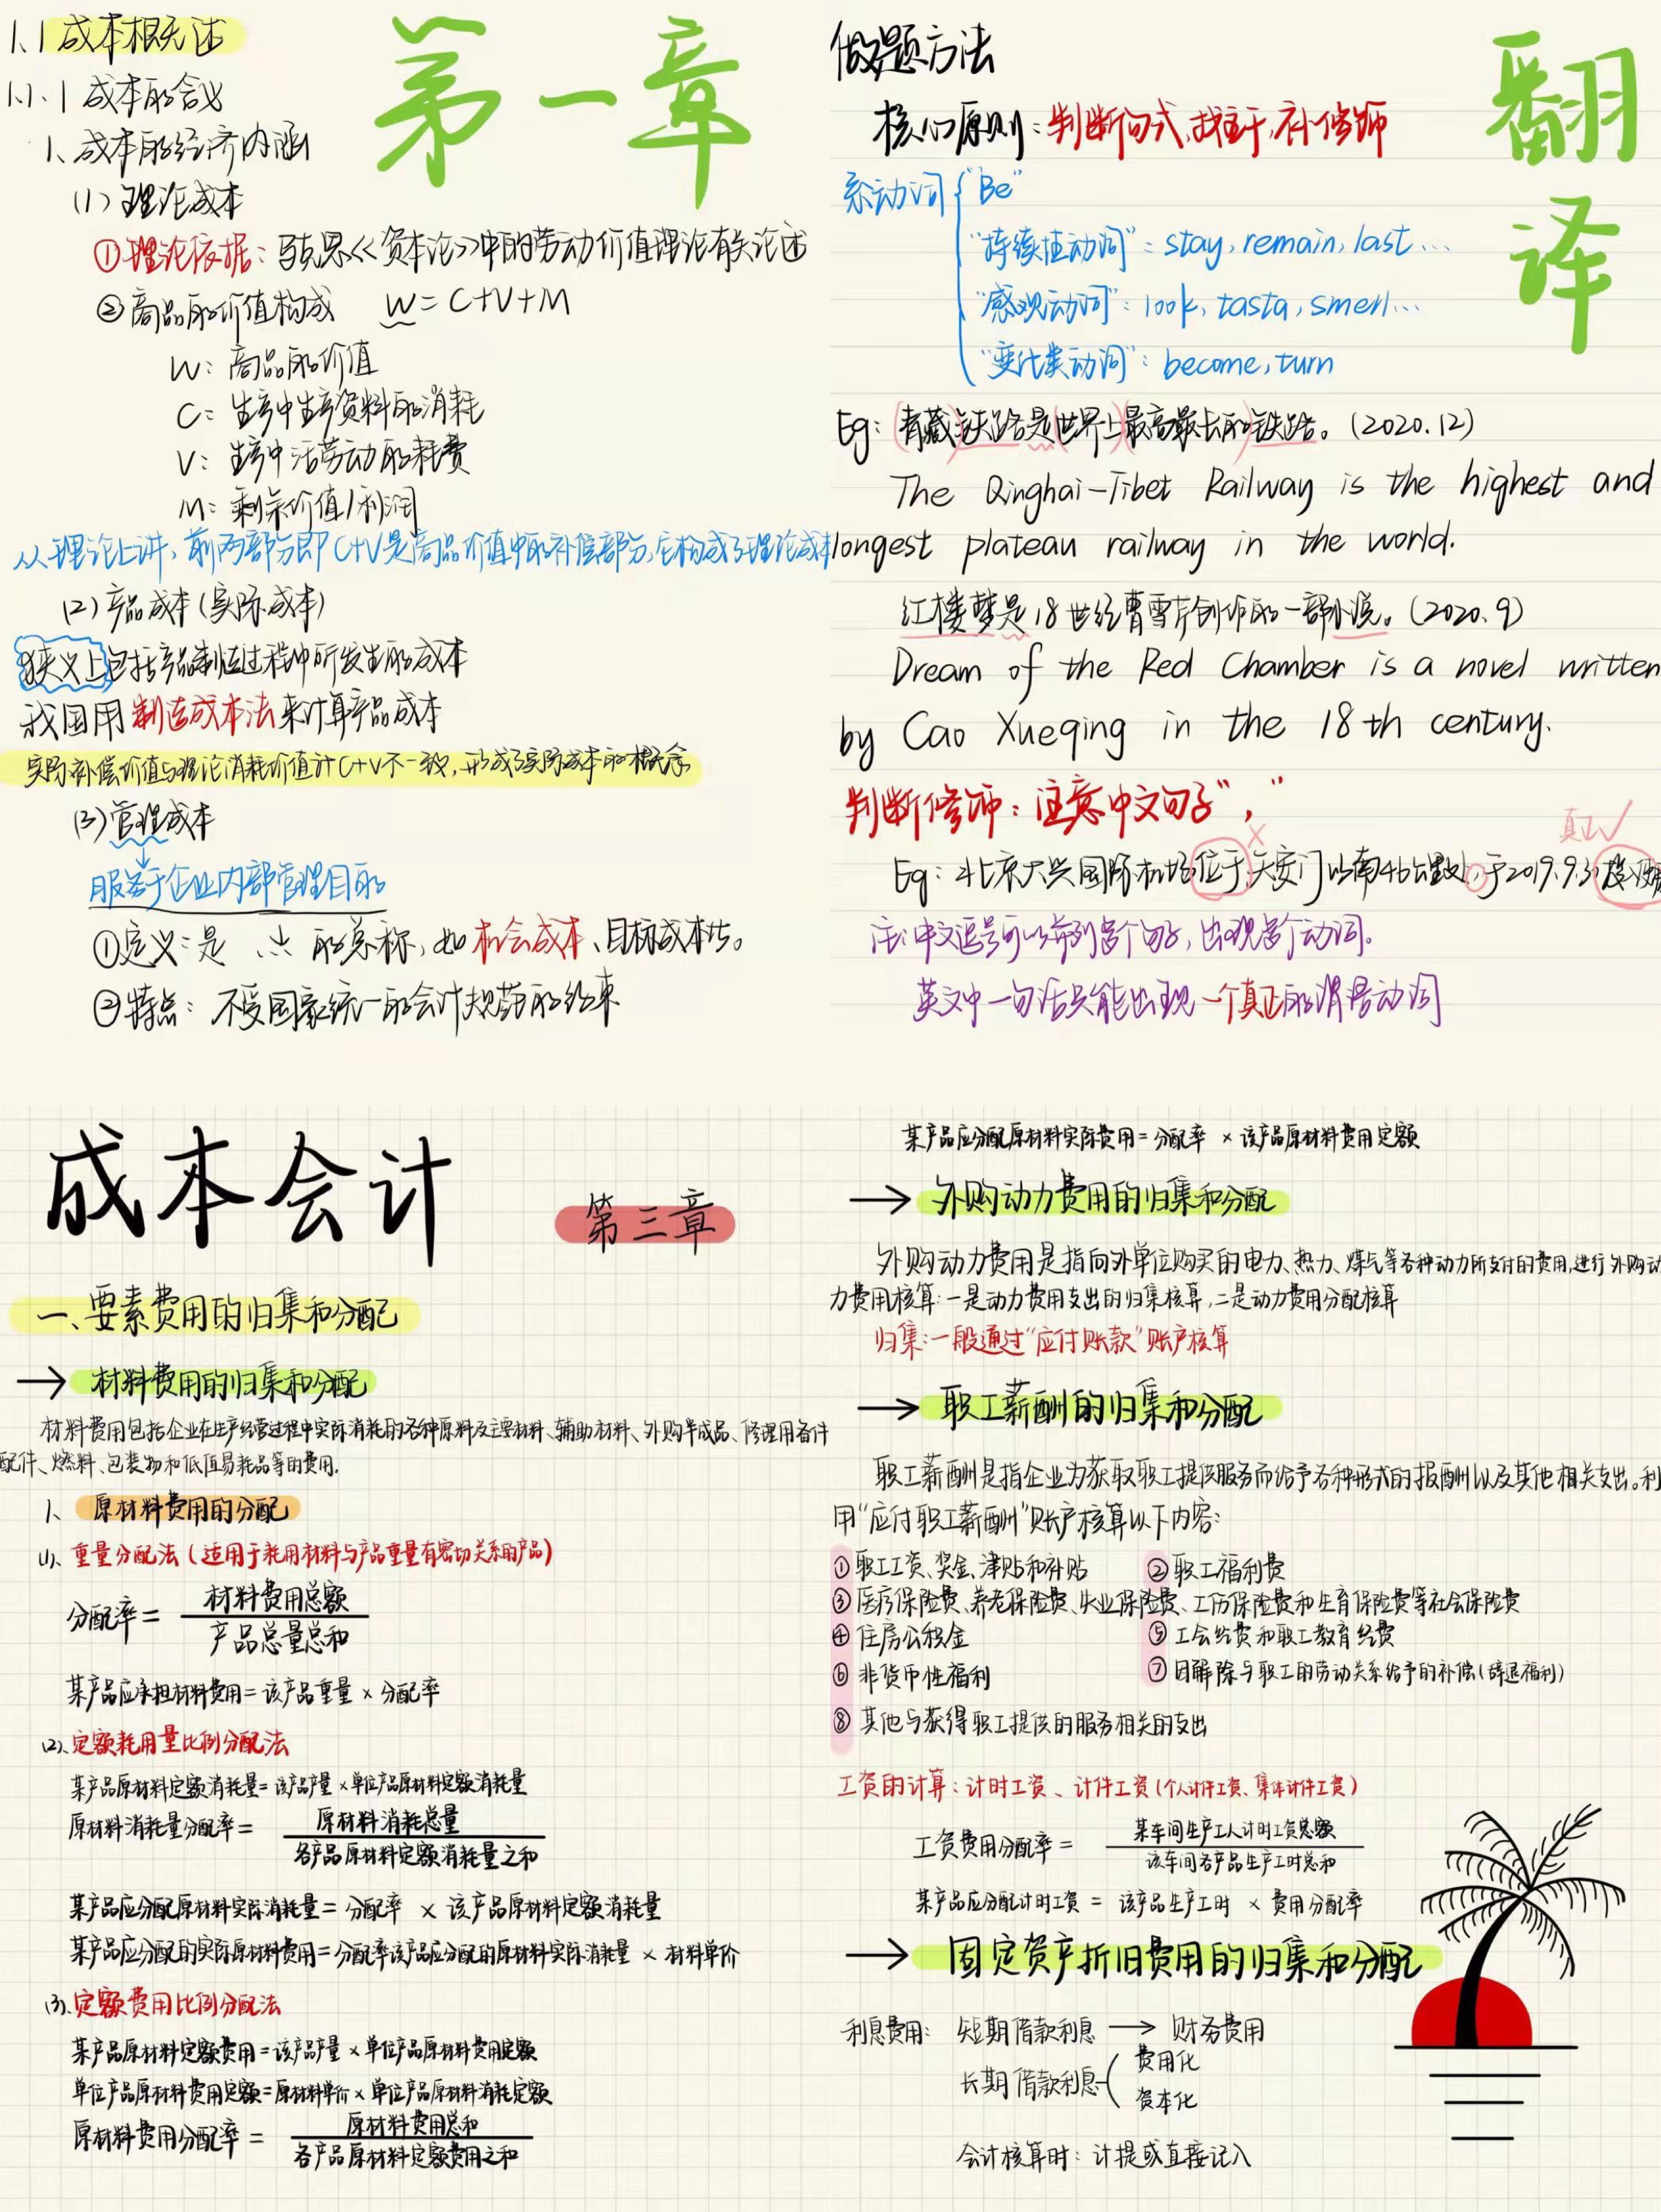 1.1 成本概述
第一章
1.1.1 成本的含义
1、成本的经济内涵
(1) 理论成本
①理论依据：马克思<<资本论>>中的劳动价值理论有关论述
②商品的价值构成 W=C+V+M
W：商品的价值
C：生产中生产资料的消耗
V：生产中活劳动的耗费
M：剩余价值/利润
从理论上讲，前两部分即C+V是商品价值中的补偿部分，它构成了理论成本
(2) 产品成本(实际成本)
狭义上包括产品制造过程中所发生的成本
我国用制造成本法来计算产品成本
实际补偿价值与理论消耗价值计C+V不一致，形成了实际成本的概念
(3) 管理成本
服务于企业内部管理目的
①定义：是 的总称，如机会成本、目标成本等。
②特点：不受国家统一的会计规范的约束
做题方法
翻译
核心原则：判断句式，找主干，补修饰
系动词 "Be"
"持续性动词"：stay, remain, last...
"感观动词"：look, tasta, smell...
"变化类动词"：become, turn
Eg：(青藏)铁路是(世界上)(最高最长的)铁路。(2020.12)
The Qinghai-Tibet Railway is the highest and
longest plateau railway in the world.
红楼梦是18世纪曹雪芹创作的一部小说。(2020.9)
Dream of the Red Chamber is a novel written
by Cao Xueqing in the 18th century.
判断修饰：注意中文句子"，"
真正✓
Eg：北京大兴国际机场位于天安门以南46公里处，于2019.9.30
注：中文逗号可以并列多个句子，出现多个动词。
英文中一句话只能出现一个真正的谓语动词
成本会计
第三章
一、要素费用的归集和分配
→ 材料费用的归集和分配
材料费用包括企业在生产经营过程中实际消耗的各种原料及主要材料、辅助材料、外购半成品、修理用备件
配件、燃料、包装物和低值易耗品等的费用.
1、原材料费用的分配
(1)、重量分配法(适用于耗用材料与产品重量有密切关系的产品)
分配率= 材料费用总额
产品总量总和
某产品应承担材料费用=该产品重量×分配率
(2)、定额耗用量比例分配法
某产品原材料定额消耗量=该产品产量×单位产品原材料定额消耗量
原材料消耗量分配率= 原材料消耗总量
各产品原材料定额消耗量之和
某产品应分配原材料实际消耗量=分配率 × 该产品原材料定额消耗量
某产品应分配的实际原材料费用=分配率该产品应分配的原材料实际消耗量 × 材料单价
(3)、定额费用比例分配法
某产品原材料定额费用=该产品产量×单位产品原材料费用定额
单位产品原材料费用定额=原材料单价×单位产品原材料消耗定额
原材料费用分配率= 原材料费用总和
各产品原材料定额费用之和
某产品应分配原材料实际费用=分配率 × 该产品原材料费用定额
→ 外购动力费用的归集和分配
外购动力费用是指向外单位购买的电力、热力、煤气等各种动力所支付的费用,进行外购动
力费用核算:一是动力费用支出的归集核算,二是动力费用分配核算
归集:一般通过"应付账款"账户核算
→ 职工薪酬的归集和分配
职工薪酬是指企业为获取职工提供服务而给予各种形式的报酬以及其他相关支出。利
用"应付职工薪酬"账户核算以下内容：
①职工工资、奖金、津贴和补贴 ②职工福利费
③医疗保险费、养老保险费、失业保险费、工伤保险费和生育保险费等社会保险费
④住房公积金 ⑤工会经费和职工教育经费
⑥非货币性福利 ⑦因解除与职工的劳动关系给予的补偿(辞退福利)
⑧其他与获得职工提供的服务相关的支出
工资的计算：计时工资、计件工资(个人计件工资、集体计件工资)
工资费用分配率= 某车间生产工人计时工资总额
该车间各产品生产工时总和
某产品应分配计时工资 = 该产品生产工时 × 费用分配率
→ 固定资产折旧费用的归集和分配
利息费用： 短期借款利息 → 财务费用
长期借款利息 费用化
资本化
会计核算时：计提或直接记入